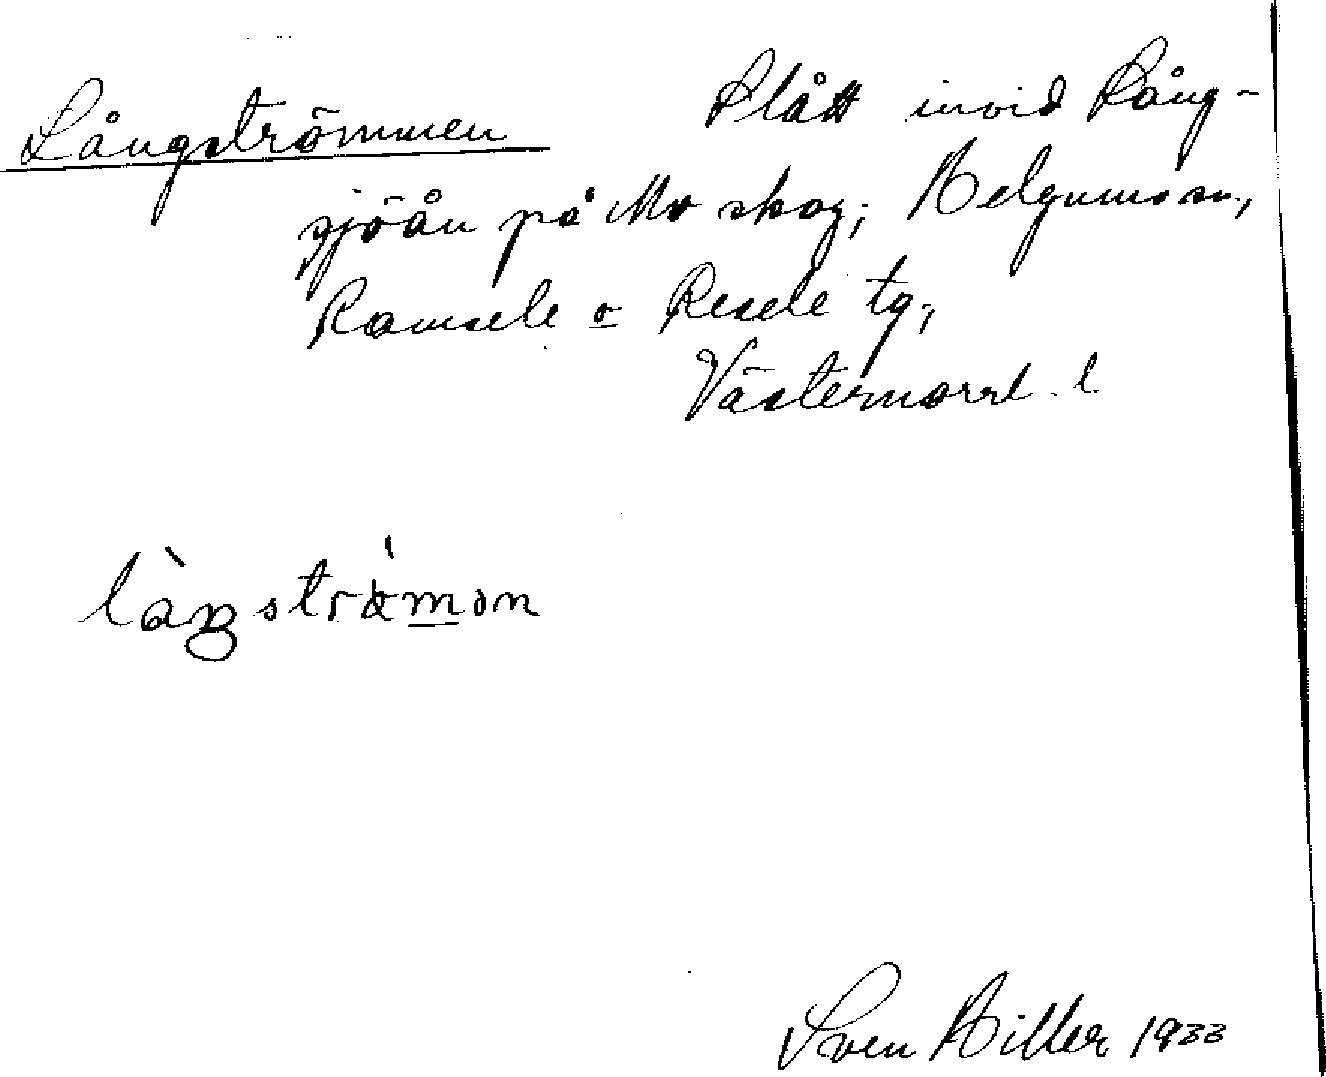 Långströmmen
Slått invid Rång-
sjöån på Mo skog; Helgums sn.,
Ramsele o Resele tg;
Västernorrl. l
làŋstrǿmon
Sven Hiller 1933